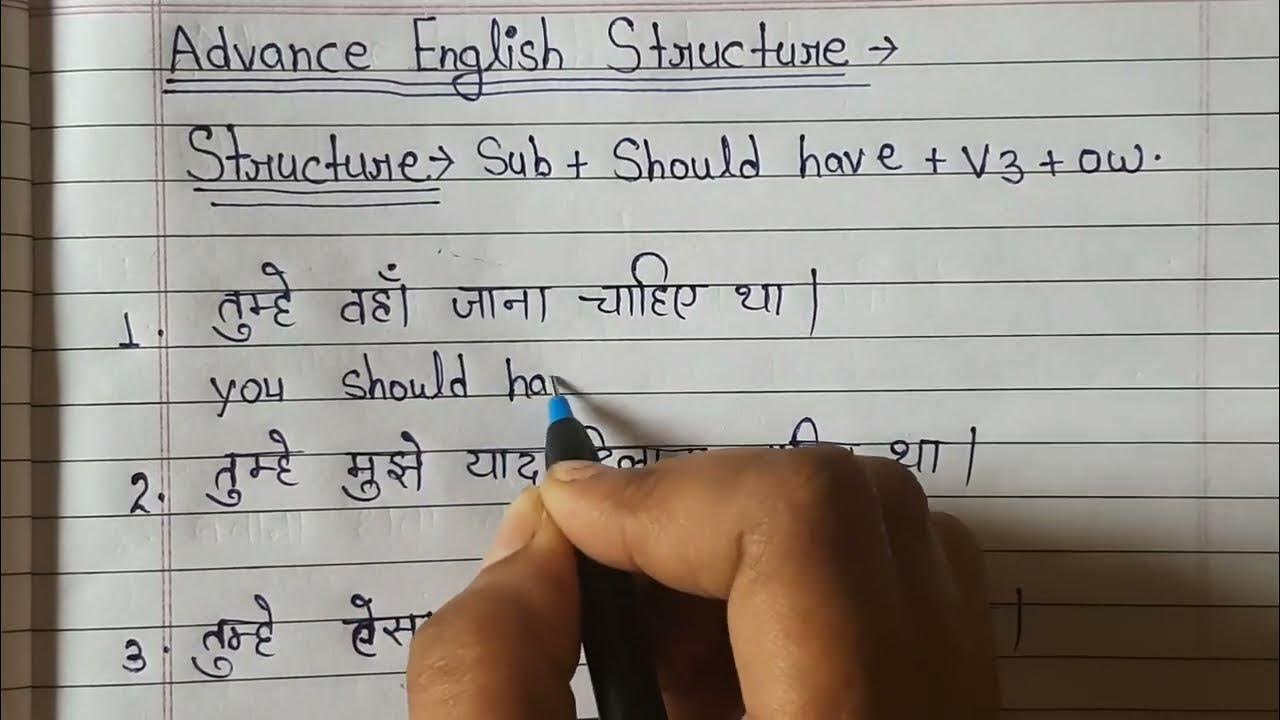 Advance English Structure →
Structure → Sub + Should have + V3 + ow.
1. तुम्हे वहाँ जाना चाहिए था |
you should ha
2. तुम्हे मुझे याद था |
3. तुम्हे |